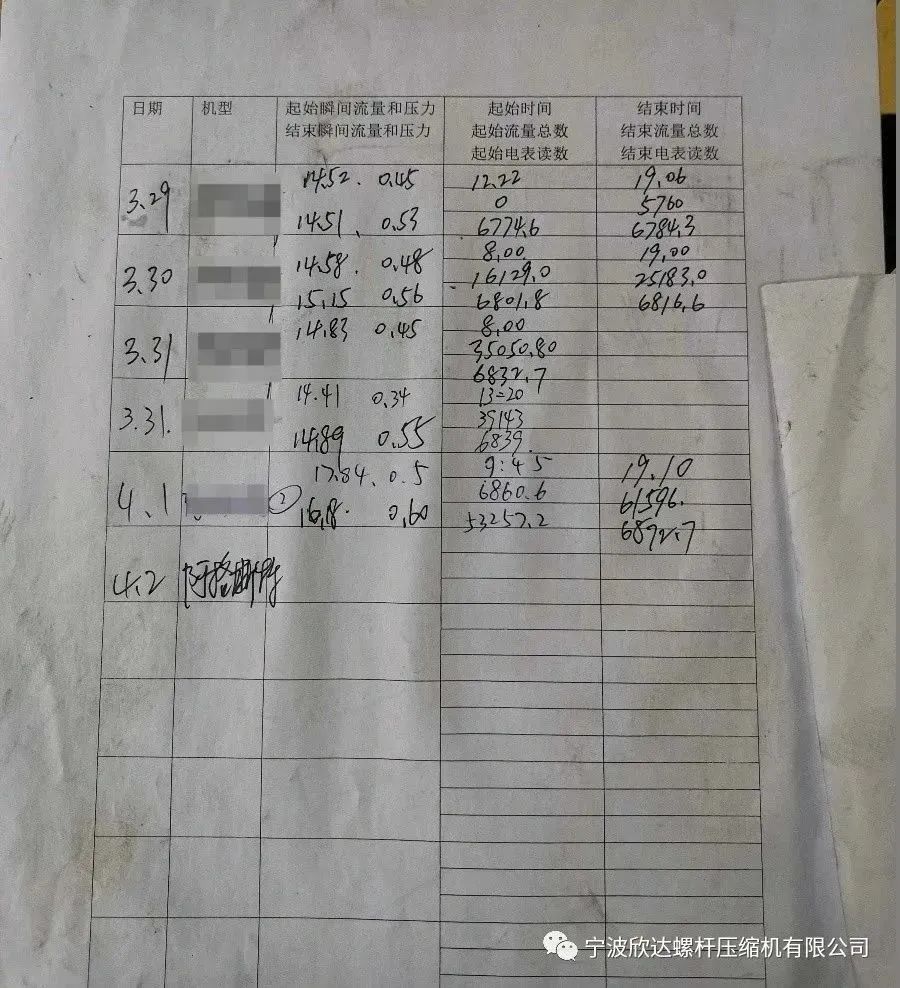 日期 机型 起始瞬间流量和压力 起始时间 结束时间
结束瞬间流量和压力 起始流量总数 结束流量总数
起始电表读数 结束电表读数
3.29 14.52. 0.45 12.22 19.06
0 5760
14.51、 0.53 6774.6 6784.3
3.30 14.58. 0.48 8.00 19.00
16129.0 25183.0
15.15 0.56 6801.8 6816.6
3.31 14.83 0.45 8.00
35050.80
6832.7
3.31. 14.41 0.34 13=20
39143
14.89 0.55 6839.
4.1 ② 17.84. 0.5 9:45 19.10
6860.6 61596.
16.8. 0.60 53257.2 6892.7
4.2
宁波欣达螺杆压缩机有限公司